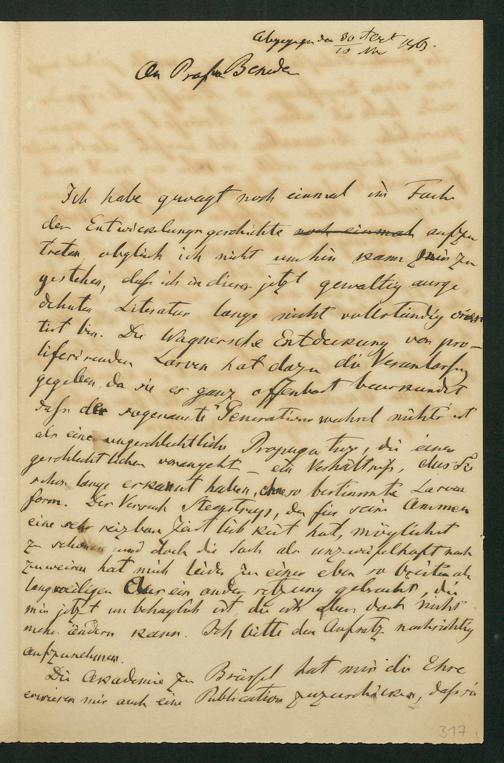 Abgegangen den 30 Oct / 10 Nov 186.
An Prof. Beneden
Ich habe gewagt noch einmal im Fach
der Entwicklungsgeschichte noch einmal aufzu
treten, obgleich ich nicht umhin kann zu
gestehen, daß ich in dieser jetzt gewaltig ausge
dehnten Literatur lange nicht vollständig orien
tirt bin. Die Wagnersche Entdeckung von pro-
liferirenden Larven hat dazu die Veranlassung
gegeben, da sie es ganz offenbart beurkundet
daß der sogenannte Generationswechsel nichts ist
als eine ungeschlechtliche Propagation, die einer
geschlechtlichen vorangeht – ein Verhältniß, das Sie
schon lange erkannt haben, bestimmte Larven
form. Der Versuch Steenstrups, der für seine Ammen
eine sehr reizbare Zärtlichkeit hat, möglichst
zu schonen und doch die Sache als unzweifelhaft nach
zuweisen hat mich leider zu einer eben so breiten als
langweiligen Auseinandersetzung gebracht, die
mir jetzt unbehaglich ist die ich aber doch nicht
mehr ändern kann. Ich bitte den Aufsatz nachsichtig
aufzunehmen.
Die Akademie zu Brüssel hat mir die Ehre
erwiesen mir auch eine Publication zuzuschicken, daß sie
317